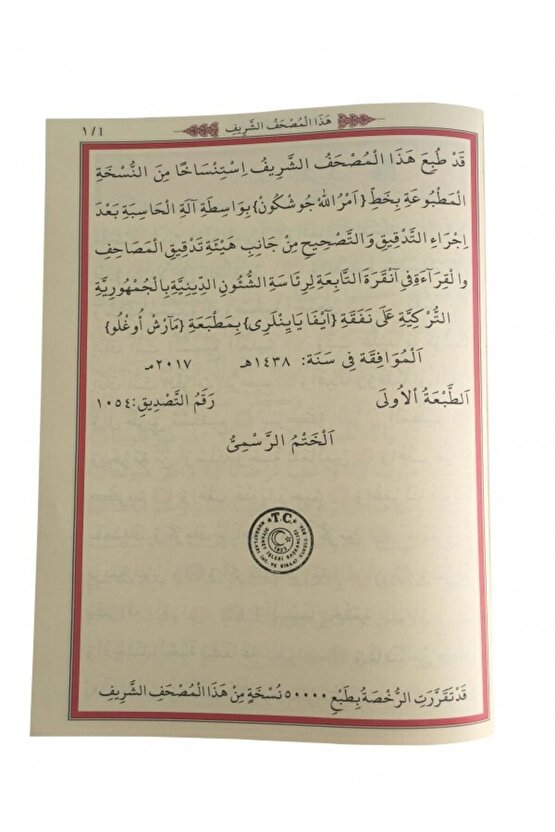 هَذَا الْمُصْحَفُ الشَّرِيفِ
١/٤
قَدْ طُبِعَ هَذَا الْمُصْحَفُ الشَّرِيفُ اِسْتِنْسَاخًا مِنَ النُّسْخَةِ
الْمَطْبُوعَةِ بِخَطِّ {اَمْرُ اللّٰهْ جُوشْكُونْ} بِوَاسِطَةِ آلَةِ الْحَاسِبَةِ بَعْدَ
اِجْرَاءِ التَّدْقِيقِ وَالتَّصْحِيحِ مِنْ جَانِبِ هَيْئَةِ تَدْقِيقِ الْمَصَاحِفِ
وَالْقِرَآءَةِ فِى آنْقَرَةَ التَّابِعَةِ لِرِئَاسَةِ الشُّئُونِ الدِّينِيَّةِ بِالْجُمْهُورِيَّةِ
التُّرْكِيَّةِ عَلَى نَفَقَةِ {آيْفَا يَايِنْلَرِى} بِمَطْبَعَةِ {مَآرْش أُوغْلُو}
اَلْمُوَافِقَةِ فِى سَنَةِ: ١٤٣٨هـ ٢٠١٧مـ
اَلطَّبْعَةُ الْاُولَى رَقَمُ التَّصْدِيقِ: ١٠٥٤
اَلْخَتْمُ الرَّسْمِىُّ
T.C.
قَدْ تَقَرَّرَتِ الرُّخْصَةُ بِطَبْعِ ٥٠٠٠٠ نُسْخَةٍ مِنْ هَذَا الْمُصْحَفِ الشَّرِيفِ